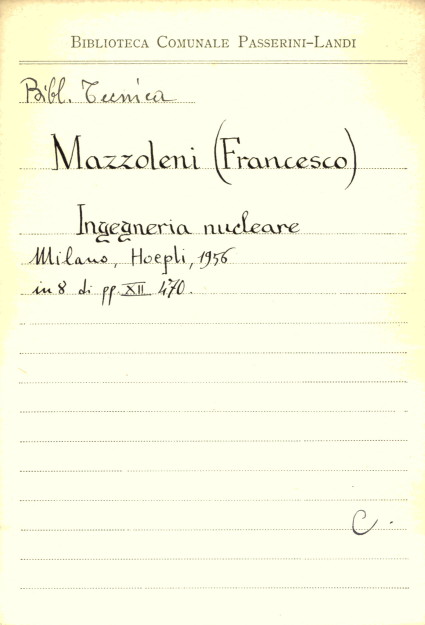 BIBLIOTECA COMUNALE PASSERINI-LANDI
Bibl. Tecnica
Mazzoleni (Francesco)
Ingegneria nucleare
Milano, Hoepli, 1956
in 8 di pp. XII 470.
C.